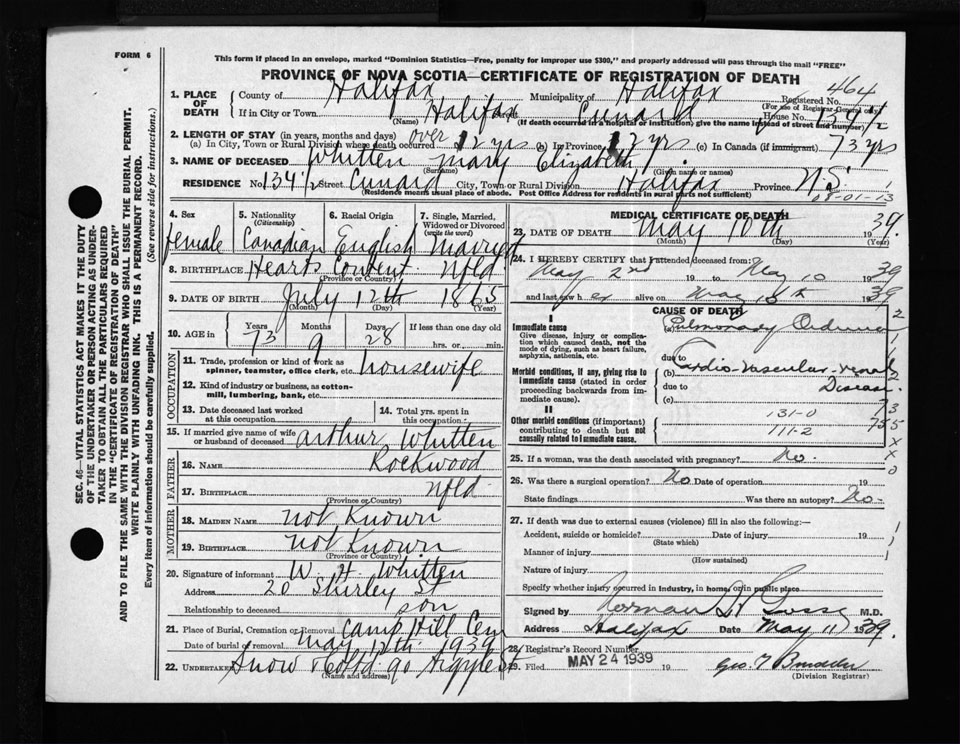 FORM 6
This form if placed in an envelope, marked "Dominion Statistics—Free, penalty for improper use $300," and properly addressed will pass through the mail "FREE"
PROVINCE OF NOVA SCOTIA—CERTIFICATE OF REGISTRATION OF DEATH
464
1. PLACE OF DEATH
County of Halifax Municipality of Halifax Registered No.
(For use of Registrar-General only)
If in City or Town Halifax Street Cunard House No. 134 1/2
(Name) (If death occurred in a hospital or institution, give the name instead of street and number)
2. LENGTH OF STAY (in years, months and days)
(a) In City, Town or Rural Division where death occurred over 12 yrs (b) In Province 12 yrs (c) In Canada (if immigrant) 73 yrs
3. NAME OF DECEASED Whitten Mary Elizabeth
(Surname) (Given name or names)
RESIDENCE No. 134 1/2 Street Cunard City, Town or Rural Division Halifax Province NS
(Residence means usual place of abode. Post Office Address for residents in rural parts not sufficient)
08-01-13
4. Sex female
5. Nationality (Citizenship) Canadian
6. Racial Origin English
7. Single, Married, Widowed or Divorced (write the word) Married
8. BIRTHPLACE Hearts Content Nfld
(Province or Country)
9. DATE OF BIRTH July 12th 1865
(Month) (Day) (Year)
10. AGE in Years 73 Months 9 Days 28 If less than one day old hrs. or min.
OCCUPATION
11. Trade, profession or kind of work as spinner, teamster, office clerk, etc. housewife
12. Kind of industry or business, as cotton-mill, lumbering, bank, etc.
13. Date deceased last worked at this occupation
14. Total yrs. spent in this occupation
15. If married give name of wife or husband of deceased Arthur Whitten
FATHER
16. NAME Rockwood
17. BIRTHPLACE Nfld
(Province or Country)
MOTHER
18. MAIDEN NAME not Known
19. BIRTHPLACE not Known
(Province or Country)
20. Signature of informant W. H. Whitten
Address 20 Shirley St
Relationship to deceased son
21. Place of Burial, Cremation or Removal Camp Hill Cem
Date of burial or removal May 12th 1939
22. UNDERTAKER Snow & Co Ltd 90 Argyle St
(Name and address)
MEDICAL CERTIFICATE OF DEATH
23. DATE OF DEATH May 10th 1939.
(Month) (Day) (Year)
24. I HEREBY CERTIFY that I attended deceased from:
May 2nd 19 to May 10 1939
and last saw her alive on May 1939
CAUSE OF DEATH
I
Immediate cause
Give disease, injury or complication which caused death, not the mode of dying, such as heart failure, asphyxia, asthenia, etc.
(a) Pulmonary Odema
due to
Morbid conditions, if any, giving rise to immediate cause (stated in order proceeding backwards from immediate cause).
(b) Cardio-vascular-renal Disease
due to
(c)
II
Other morbid conditions (if important) contributing to death but not causally related to immediate cause.
131-0
111-2
25. If a woman, was the death associated with pregnancy? No.
26. Was there a surgical operation? No. Date of operation 19
State findings Was there an autopsy? No.
27. If death was due to external causes (violence) fill in also the following:—
Accident, suicide or homicide? Date of injury 19
(State which)
Manner of injury
(How sustained)
Nature of injury
Specify whether injury occurred in industry, in home, or in public place
Signed by Norman H Gosse M.D.
Address Halifax Date May 11 1939.
28. Registrar's Record Number
29. Filed MAY 24 1939 19
(Division Registrar)
SEC. 46—VITAL STATISTICS ACT MAKES IT THE DUTY
OF THE UNDERTAKER OR PERSON ACTING AS UNDER-
TAKER TO OBTAIN ALL THE PARTICULARS REQUIRED
IN THE "CERTIFICATE OF REGISTRATION OF DEATH"
AND TO FILE THE SAME WITH THE DIVISION REGISTRAR WHO SHALL ISSUE THE BURIAL PERMIT.
WRITE PLAINLY WITH UNFADING INK. THIS IS A PERMANENT RECORD.
Every item of information should be carefully supplied. (See reverse side for instructions.)